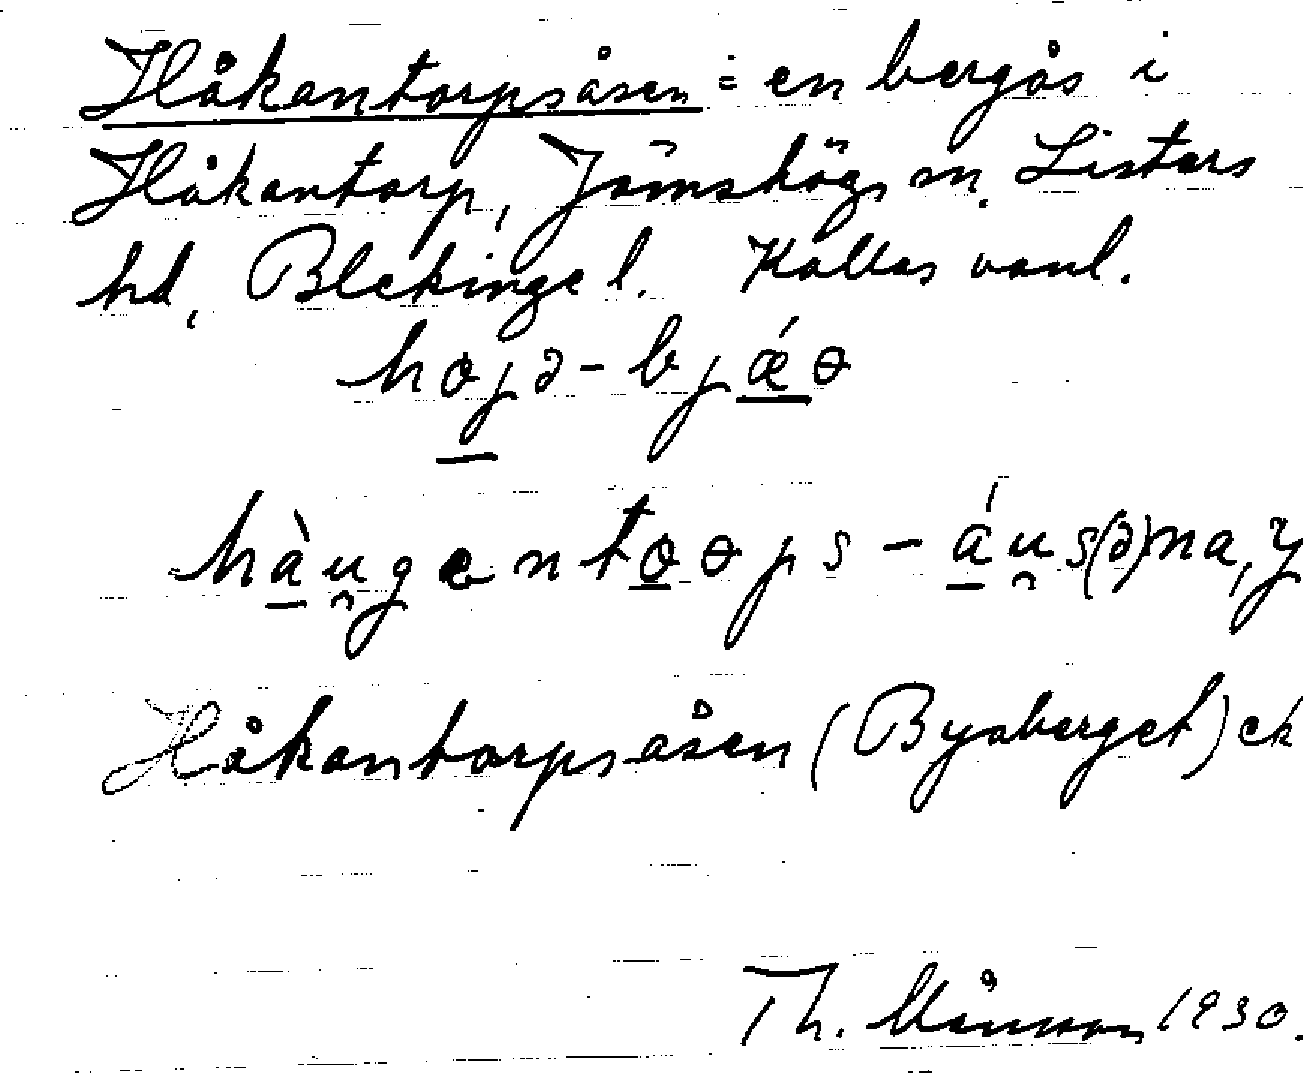 Håkantorpsåsen = en bergås i
Håkantorp, Jämshögs sn. Listers
hd, Blekinge l. Kallas vanl.
hojə-bjǽɵ
hàu̯gentoɵps-áu̯s(ə)na, y
Håkantorpsåsen (Byaberget) ek
Th. Månsson 1930.